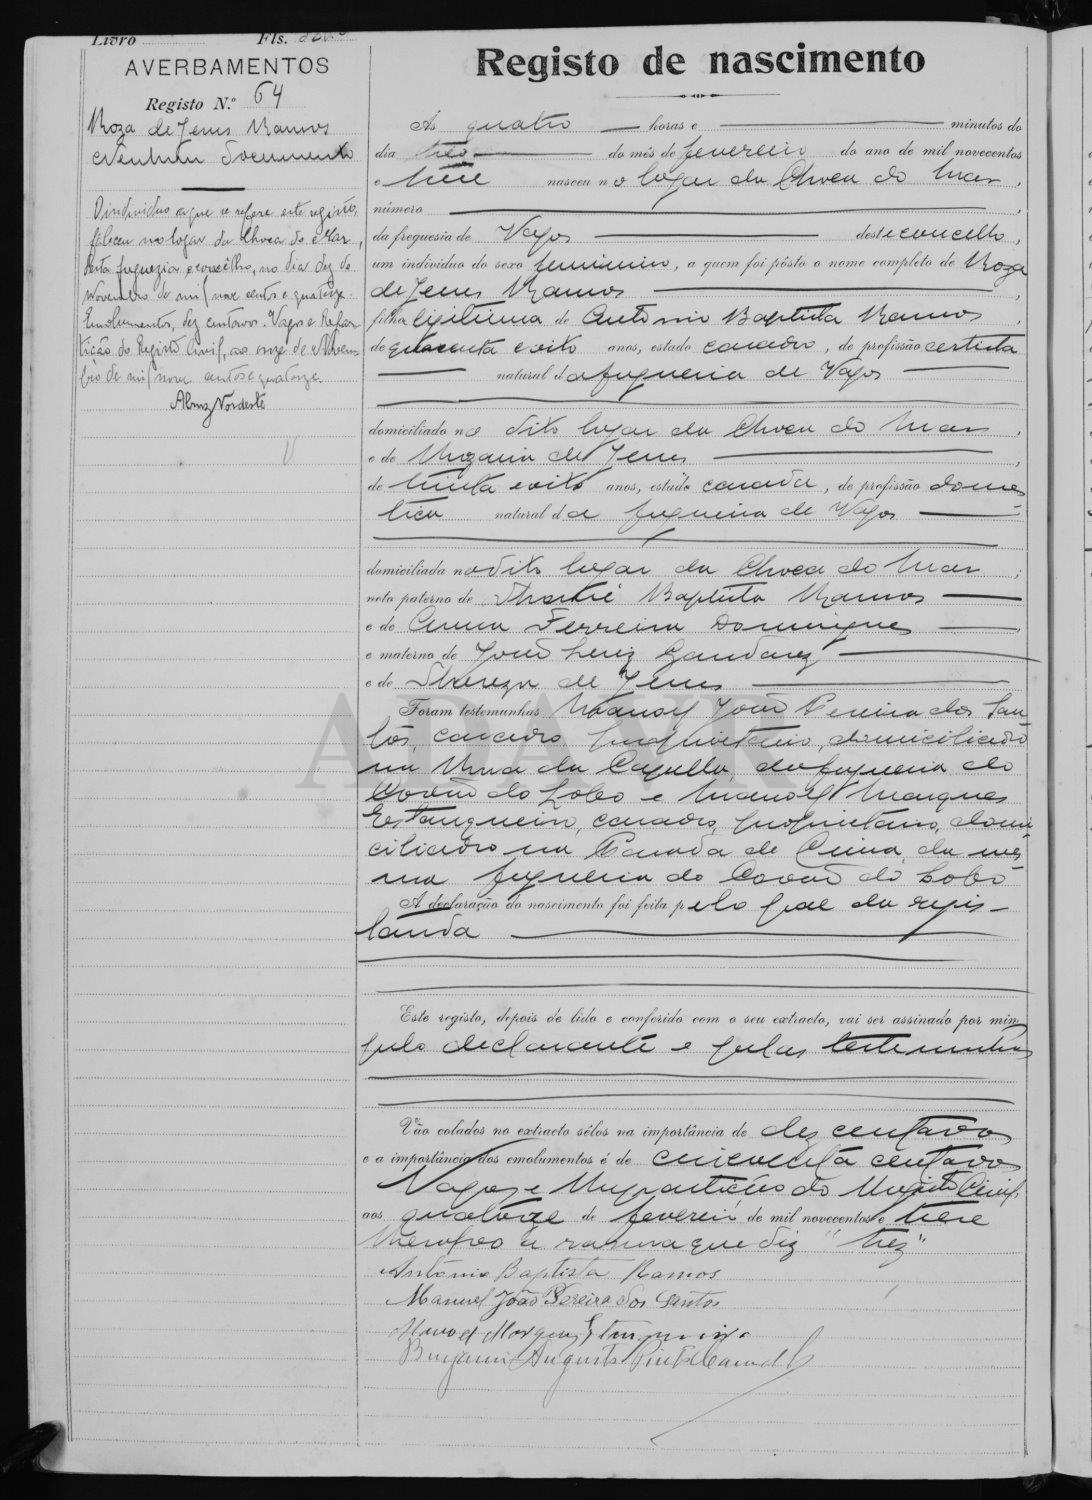 Livro Fls.
AVERBAMENTOS
Registo N.º 64
Roza de Jesus Ramos
Nenhum Documento
O individuo a que se refere este registo,
faleceu no logar da Choca do Mar,
desta freguezia e concelho, no dia dez de
Novembro de mil nove centos e quatorze.
Emolumentos, dez centavos. Vagos e Repar-
tição do Registo Civil, ao onze de Novem
bro de mil nove centos e quatorze.
Registo de nascimento
Ás quatro horas e minutos do
dia tres do mês de fevereiro do ano de mil novecentos
e treze nasceu no logar da Choca do Mar,
número ,
da freguesia de Vagos deste concelho,
um individuo do sexo feminino, a quem foi pôsto o nome completo de Roza
de Jesus Ramos ,
filha legitima de Antonio Baptista Ramos ,
de quarenta e oito anos, estado casado, de profissão
natural da freguesia de Vagos
domiciliado no dito logar da Choca do Mar ,
e de Rozaria de Jesus ,
de trinta e oito anos, estado casada, de profissão domes
tica natural da freguesia de Vagos
domiciliada no dito logar da Choca do Mar ;
neto paterno de Baptista Ramos
e de Anna Ferreira Domingues
e materno de João Luiz Gandarez
e de Thereza de Jesus
Foram testemunhas Manoel João Pereira dos San
tos, casado, proprietario, domiciliado
na Rua da Capella, da freguesia do
Covão do Lobo e Manoel Marques
Estanqueiro, casado, proprietario, domi
ciliado na de Cima, da mes
ma freguesia do Covão do Lobo
A declaração do nascimento foi feita pelo pae da regis-
tanda
Este registo, depois de lido e conferido com o seu extracto, vai ser assinado por mim
pelo declarante e pelas testemunhas
Vão colados no extracto sêlos na importância de dez centavos
e a importância dos emolumentos é de cincoenta centavos
Vagos e Repartição do Registo Civil,
aos quatorze de fevereiro de mil novecentos e treze
a rasura que diz "trez"
Antonio Baptista Ramos
Manuel João Pereira dos Santos
Manoel Marques Estanqueiro
Augusto
ADAVR